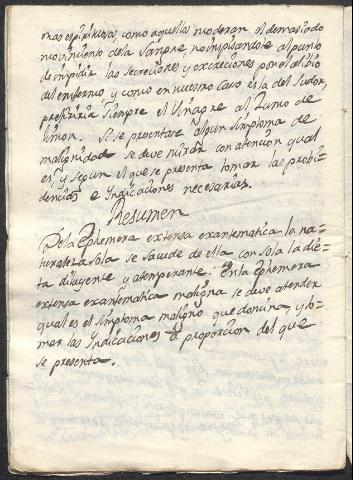 mas espirituosa, como aquellas moderan el demasiado
movimiento de la Sangre, no inspisandole al punto
de impedir las secreciones y excreciones por el alivio
del enfermo y como en nuestro caso es la del Sudor,
preferiria siempre el Vinagre al Zumo de
Limon. Si se presentase algun simptoma de
malignidad se debe mirar con atencion qual
es, y segun el que se presenta tomar las probi=
dencias e Indicaciones necesarias.
Resumen
De la Ephemera extensa exantematica la na=
turaleza sola se sacude de ella con sola la die=
ta diluyente y atemperante: En la Ephemera
extensa exantematica maligna se debe atender
qual es el simptoma maligno que domina, y to=
mar las Indicaciones a proporcion del que
se presenta.